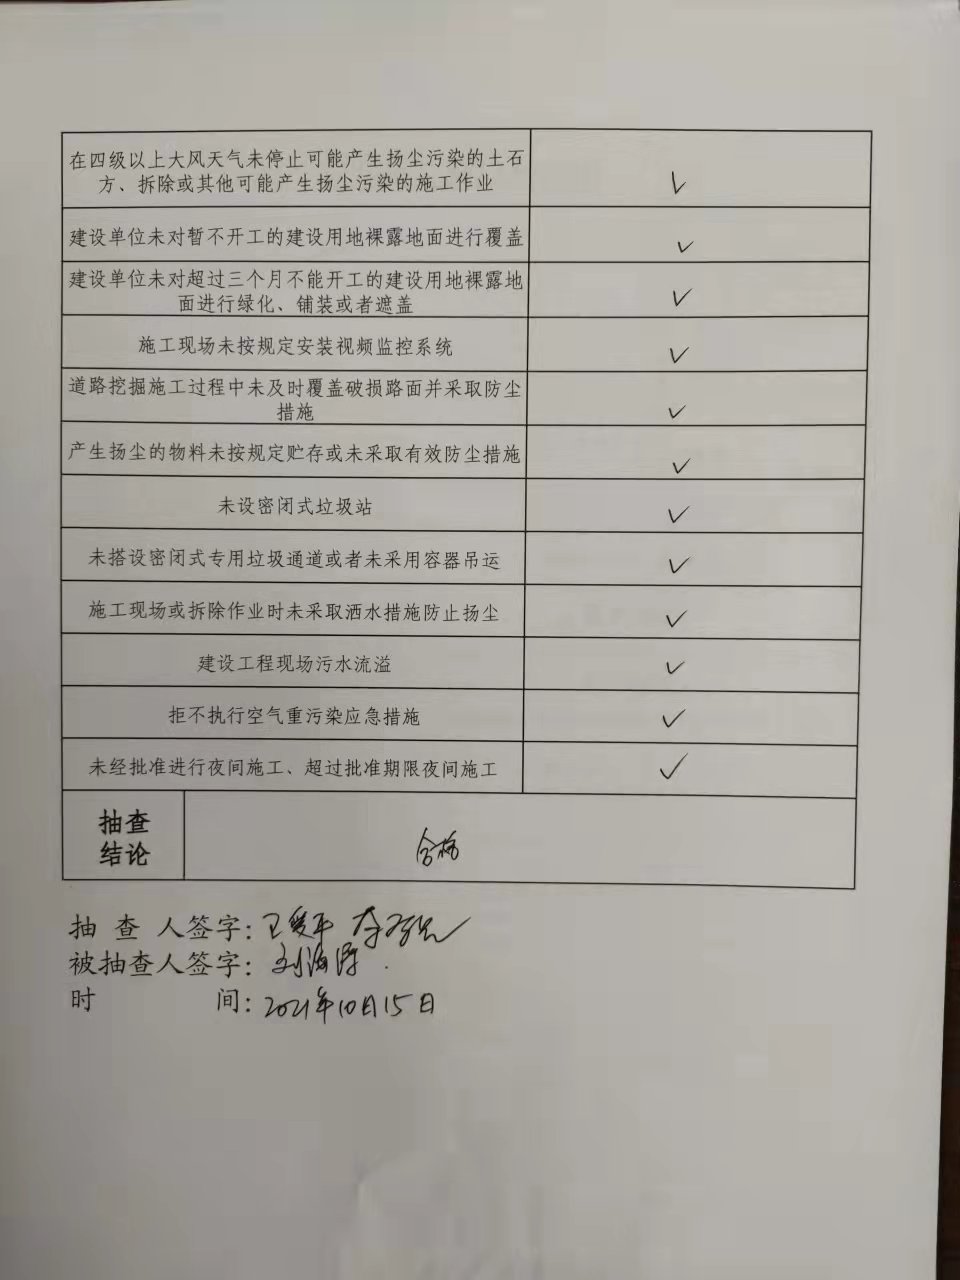 在四级以上大风天气未停止可能产生扬尘污染的土石
方、拆除或其他可能产生扬尘污染的施工作业 ✓
建设单位未对暂不开工的建设用地裸露地面进行覆盖 ✓
建设单位未对超过三个月不能开工的建设用地裸露地
面进行绿化、铺装或者遮盖 ✓
施工现场未按规定安装视频监控系统 ✓
道路挖掘施工过程中未及时覆盖破损路面并采取防尘
措施 ✓
产生扬尘的物料未按规定贮存或未采取有效防尘措施 ✓
未设密闭式垃圾站 ✓
未搭设密闭式专用垃圾通道或者未采用容器吊运 ✓
施工现场或拆除作业时未采取洒水措施防止扬尘 ✓
建设工程现场污水流溢 ✓
拒不执行空气重污染应急措施 ✓
未经批准进行夜间施工、超过批准期限夜间施工 ✓
抽查
结论
合格
抽 查 人签字:
被抽查人签字: 刘海
时 间: 2021年10月15日